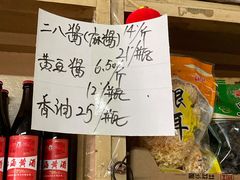 二八酱(麻酱)14/斤
21/瓶
黄豆酱 6.50/斤
12/瓶
香油25/瓶
银耳
黄酒
黄酒